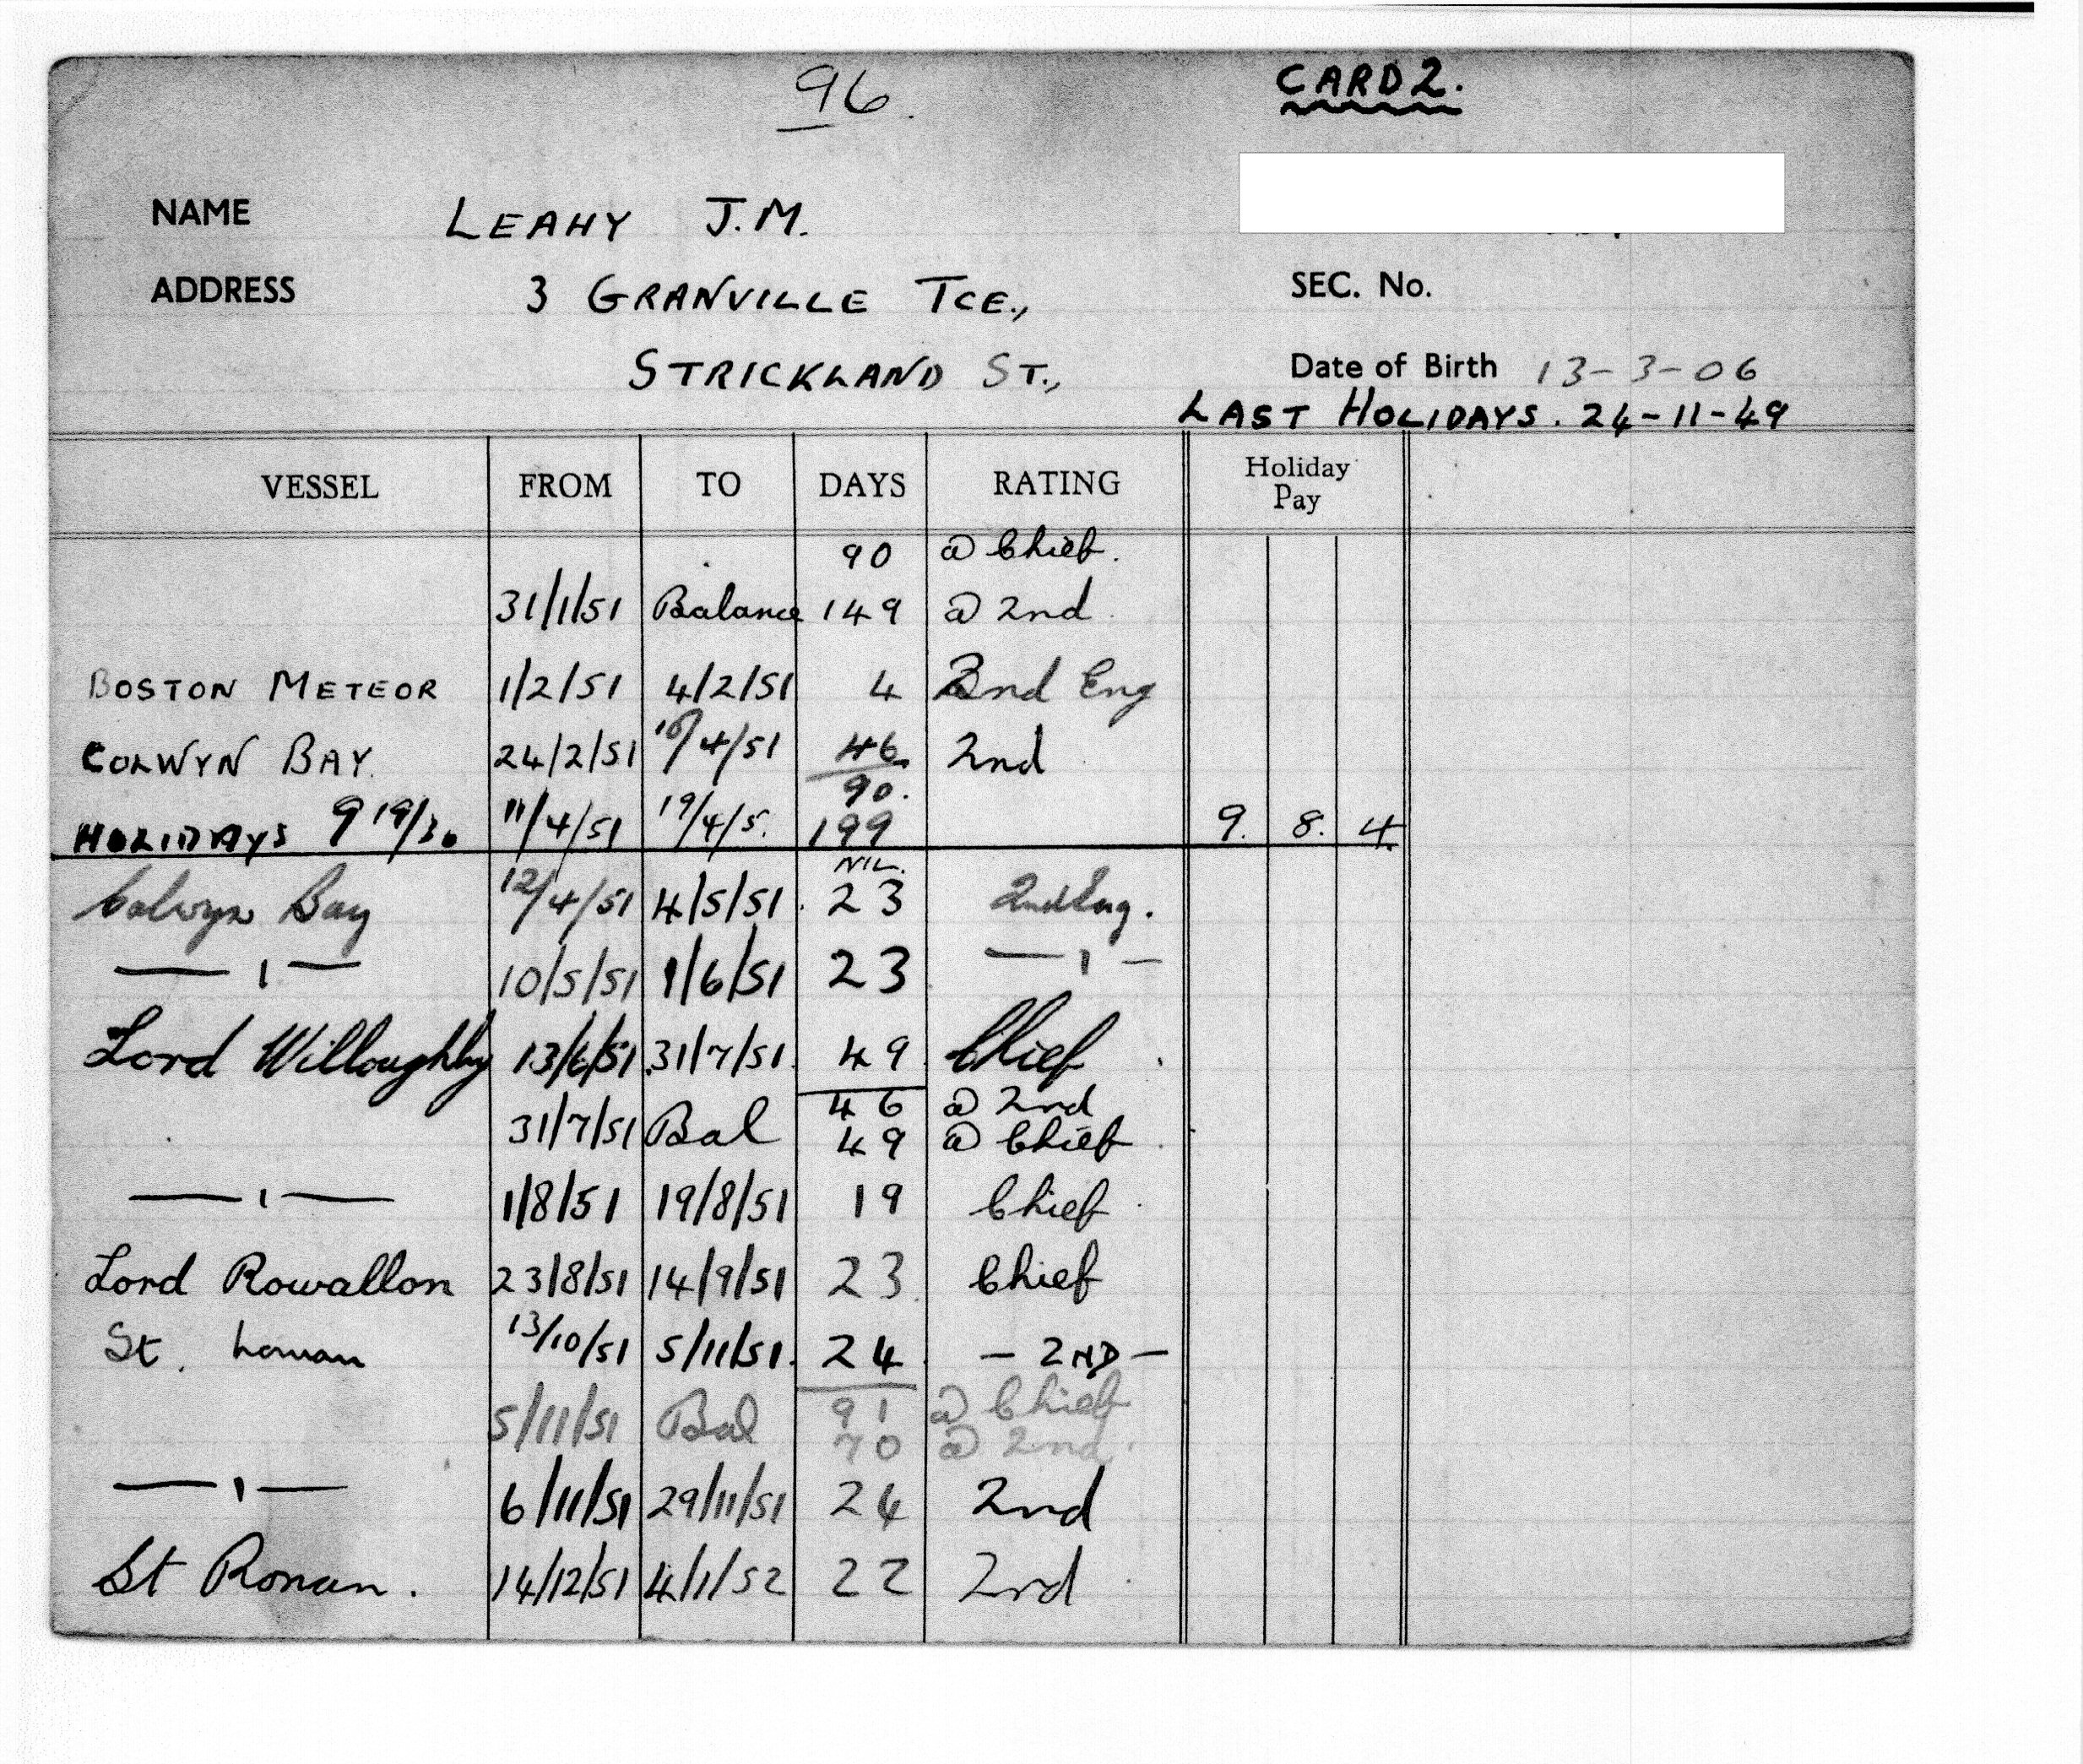 96.
CARD 2.
NAME LEAHY J.M.
ADDRESS 3 GRANVILLE TCE., SEC. No.
STRICKLAND ST., Date of Birth 13-3-06
LAST HOLIDAYS. 24-11-49
VESSEL FROM TO DAYS RATING Holiday Pay
90 @ Chief.
31/1/51 Balance 149 @ 2nd
BOSTON METEOR 1/2/51 4/2/51 4 2nd Eng
COLWYN BAY. 24/2/51 10/4/51 46 2nd
90.
HOLIDAYS 9 19/30 11/4/51 19/4/5. 199 9. 8. 4.
NIL.
Colwyn Bay 12/4/51 4/5/51. 23 2nd Eng.
— ı — 10/5/51 1/6/51 23 — ı —
Lord Willoughby 13/6/51 31/7/51. 49 Chief
46 @ 2nd
31/7/51 Bal 49 @ Chief
— ı — 1/8/51 19/8/51 19 Chief
Lord Rowallon 23/8/51 14/9/51 23 Chief
St. Loman 13/10/51 5/11/51. 24 — 2ND —
91 @ Chief
5/11/51 Bal 70 @ 2nd.
— ı — 6/11/51 29/11/51 24 2nd
St Ronan. 14/12/51 4/1/52 22 2nd